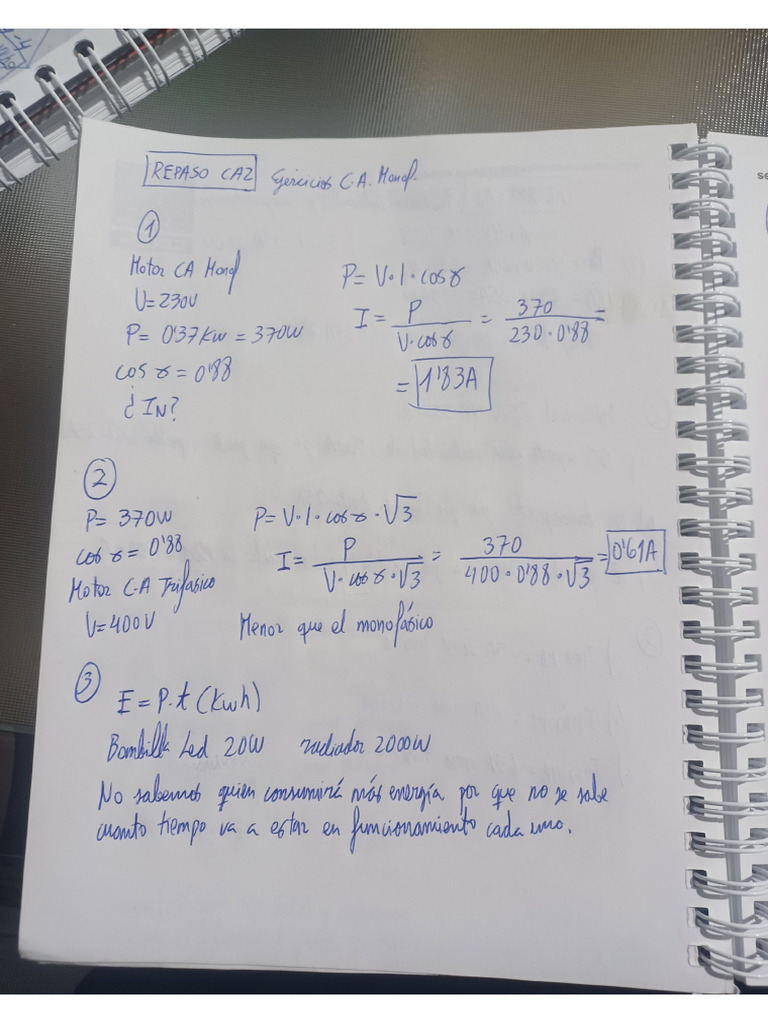 REPASO CA2 Ejercicios C.A. Monof.
①
Motor CA Monof
V=230V
P= 0'37Kw = 370W
cos γ = 0'88
¿IN?
P= V·I·cosγ
I = P / V·cosγ = 370 / 230·0'88 =
= 1'83A
②
P= 370W
cos γ = 0'88
Motor C.A Trifasico
V=400V
P= V·I·cosγ·√3
I= P / V·cosγ·√3 = 370 / 400·0'88·√3 = 0'61A
Menor que el monofásico
③
E = P.t (Kwh)
Bombilla Led 20W radiador 2000W
No sabemos quien consumirá más energía por que no se sabe
cuanto tiempo va a estar en funcionamiento cada uno.